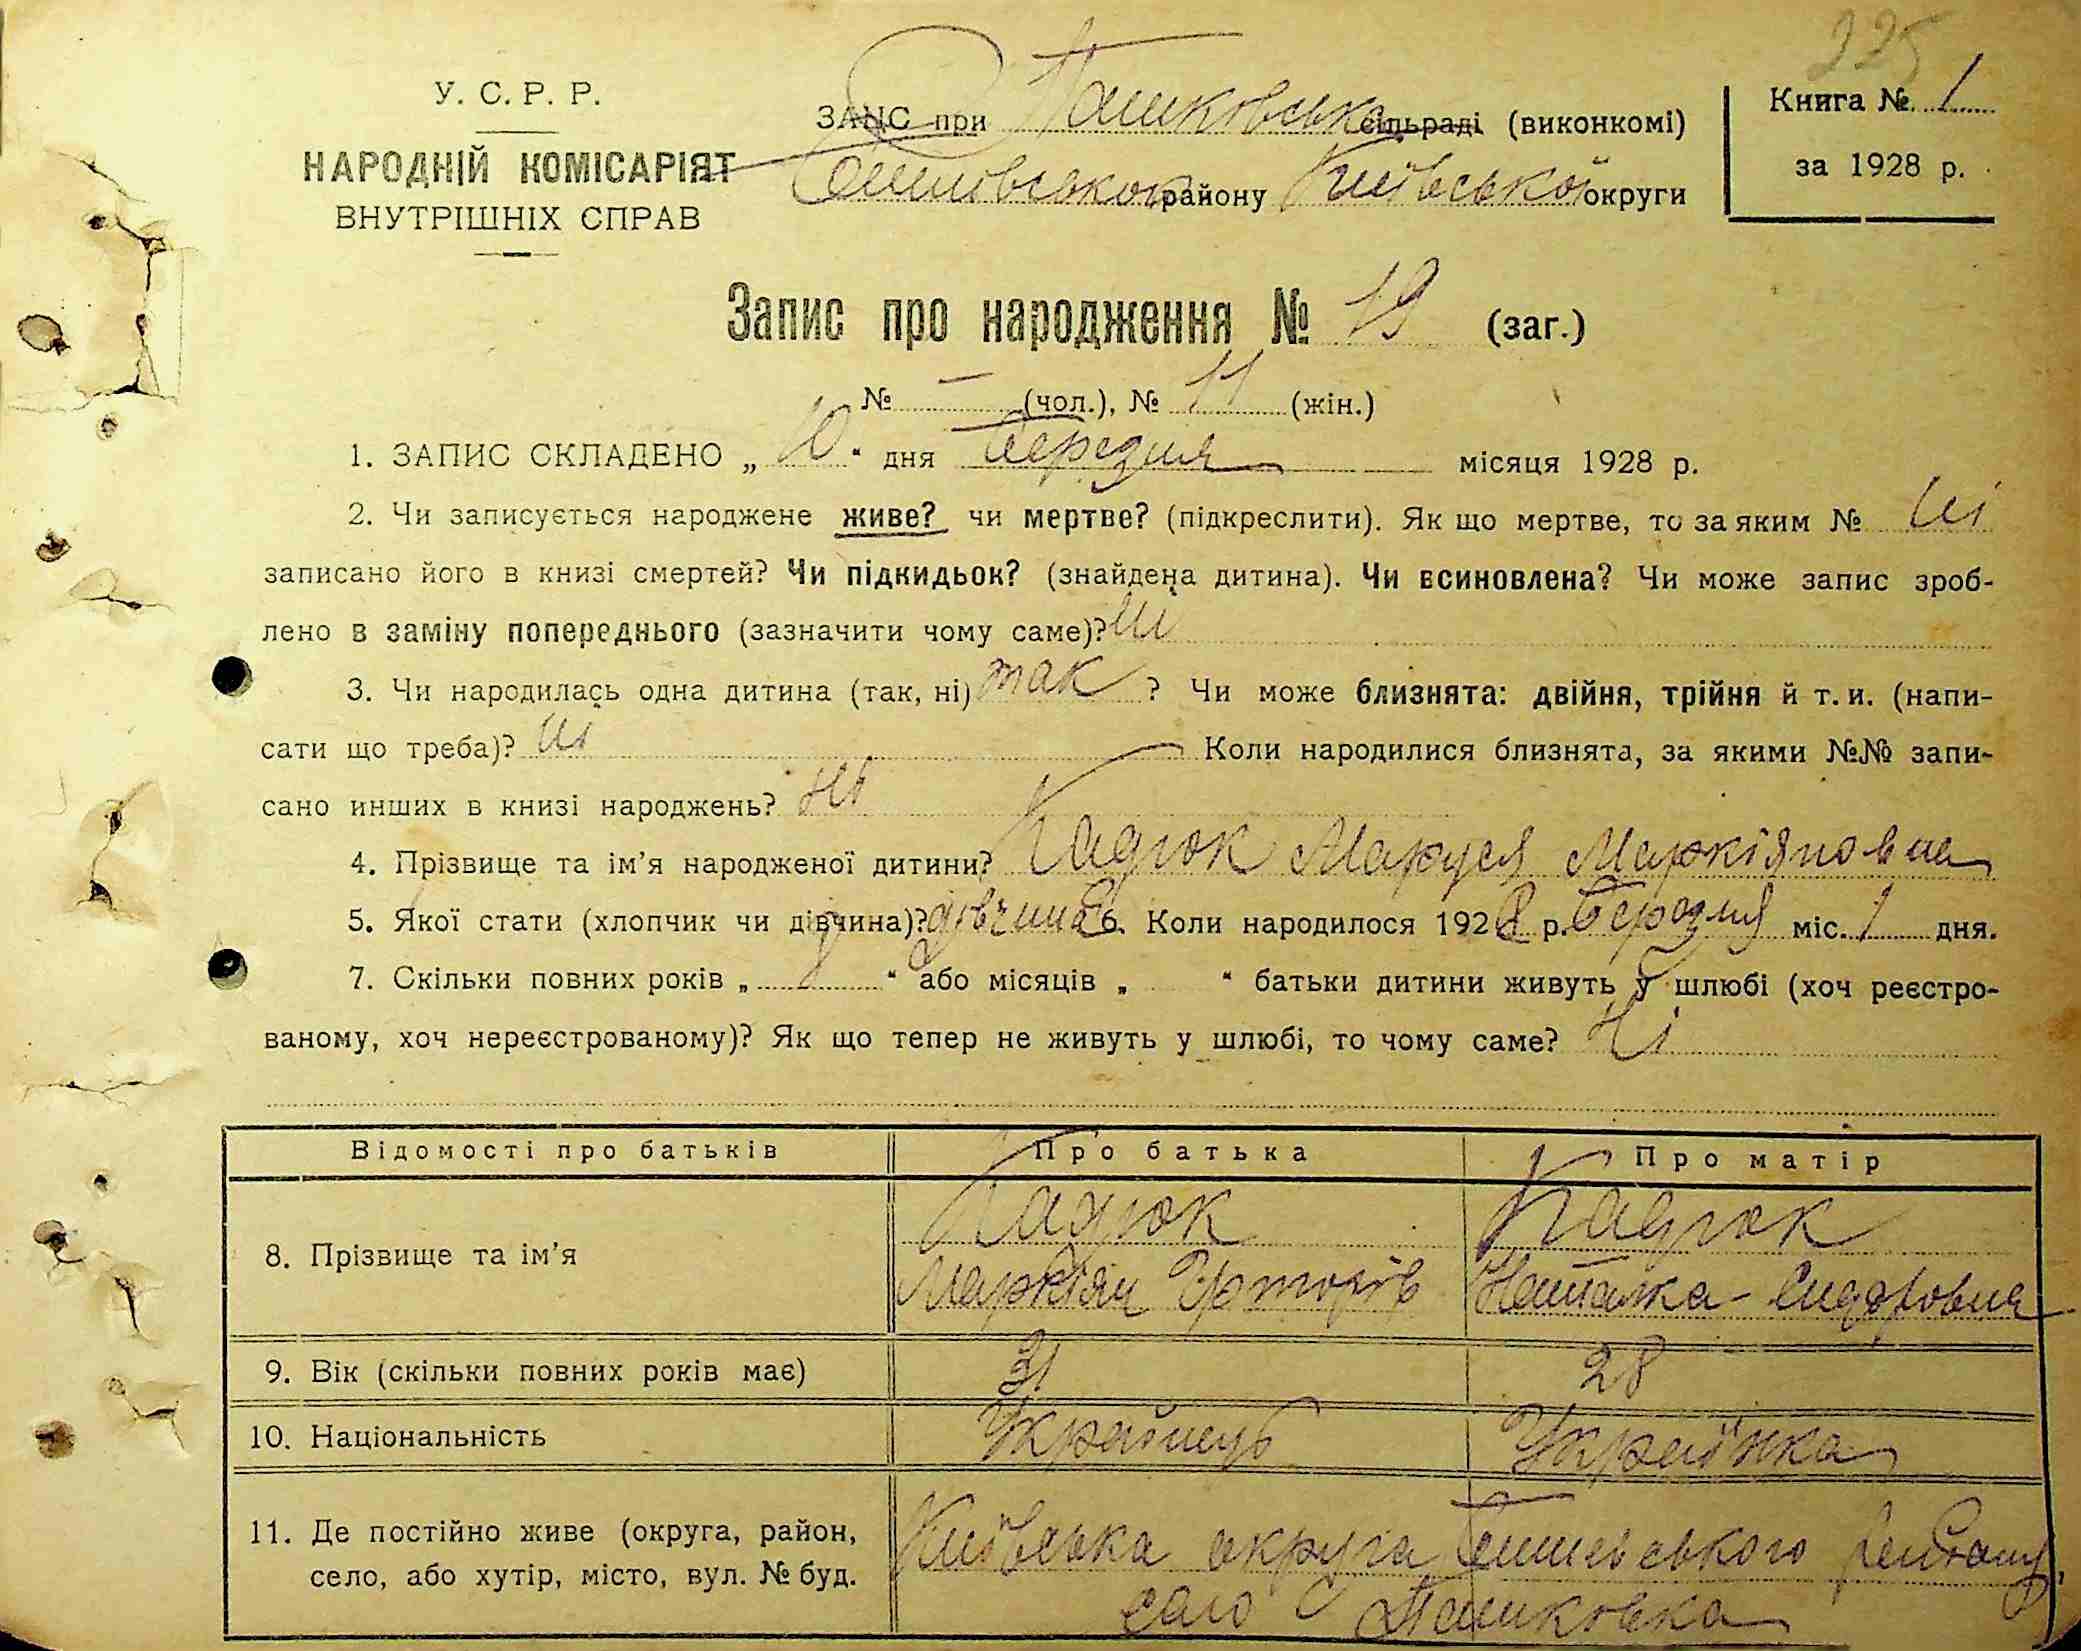 225
У. С. Р. Р.
НАРОДНІЙ КОМІСАРІЯТ
ВНУТРІШНІХ СПРАВ
ЗАГС при Пашковська сільраді (виконкомі)
району Київської округи
Книга № 1
за 1928 р.
Запис про народження № 19 (заг.)
№ — (чол.), № 11 (жін.)
1. ЗАПИС СКЛАДЕНО „ 10 “ дня Березня місяця 1928 р.
2. Чи записується народжене живе? чи мертве? (підкреслити). Як що мертве, то за яким № ні
записано його в книзі смертей? Чи підкидьок? (знайдена дитина). Чи всиновлена? Чи може запис зроб-
лено в заміну попереднього (зазначити чому саме)? ні
3. Чи народилась одна дитина (так, ні) так ? Чи може близнята: двійня, трійня й т. и. (напи-
сати що треба)? ні Коли народилися близнята, за якими №№ запи-
сано инших в книзі народжень? ні
4. Прізвище та ім’я народженої дитини? Кадюк Маруся Маркіяновна
5. Якої стати (хлопчик чи дівчина)? дівчина 6. Коли народилося 1928 р. Березня міс. 1 дня.
7. Скільки повних років „ 8 “ або місяців „ “ батьки дитини живуть у шлюбі (хоч реєстро-
ваному, хоч нереєстрованому)? Як що тепер не живуть у шлюбі, то чому саме? Ні
Відомості про батьків Про батька Про матір
8. Прізвище та ім’я Кадюк Кадюк
Маркіян Наталка - Сидоровна
9. Вік (скільки повних років має) 31 28
10. Національність Українець Українка
11. Де постійно живе (округа, район, Київська округа району,
село, або хутір, місто, вул. № буд. село Пашковка